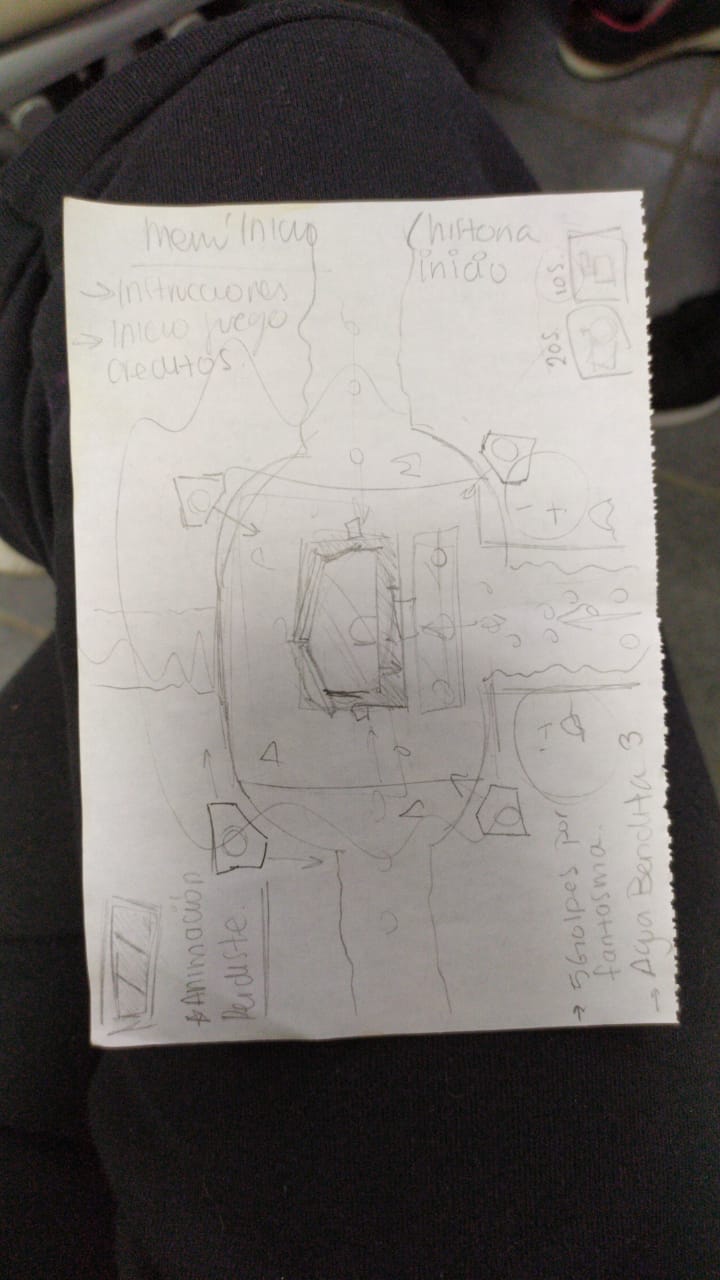 Menú Inicio
→ Instrucciones
→ Inicio juego
Creditos.
Chistona
inicio
10s.
20s.
* Animación
Perdiste.
→ 5 Golpes por
fantasma.
→ Agua Bendita 3